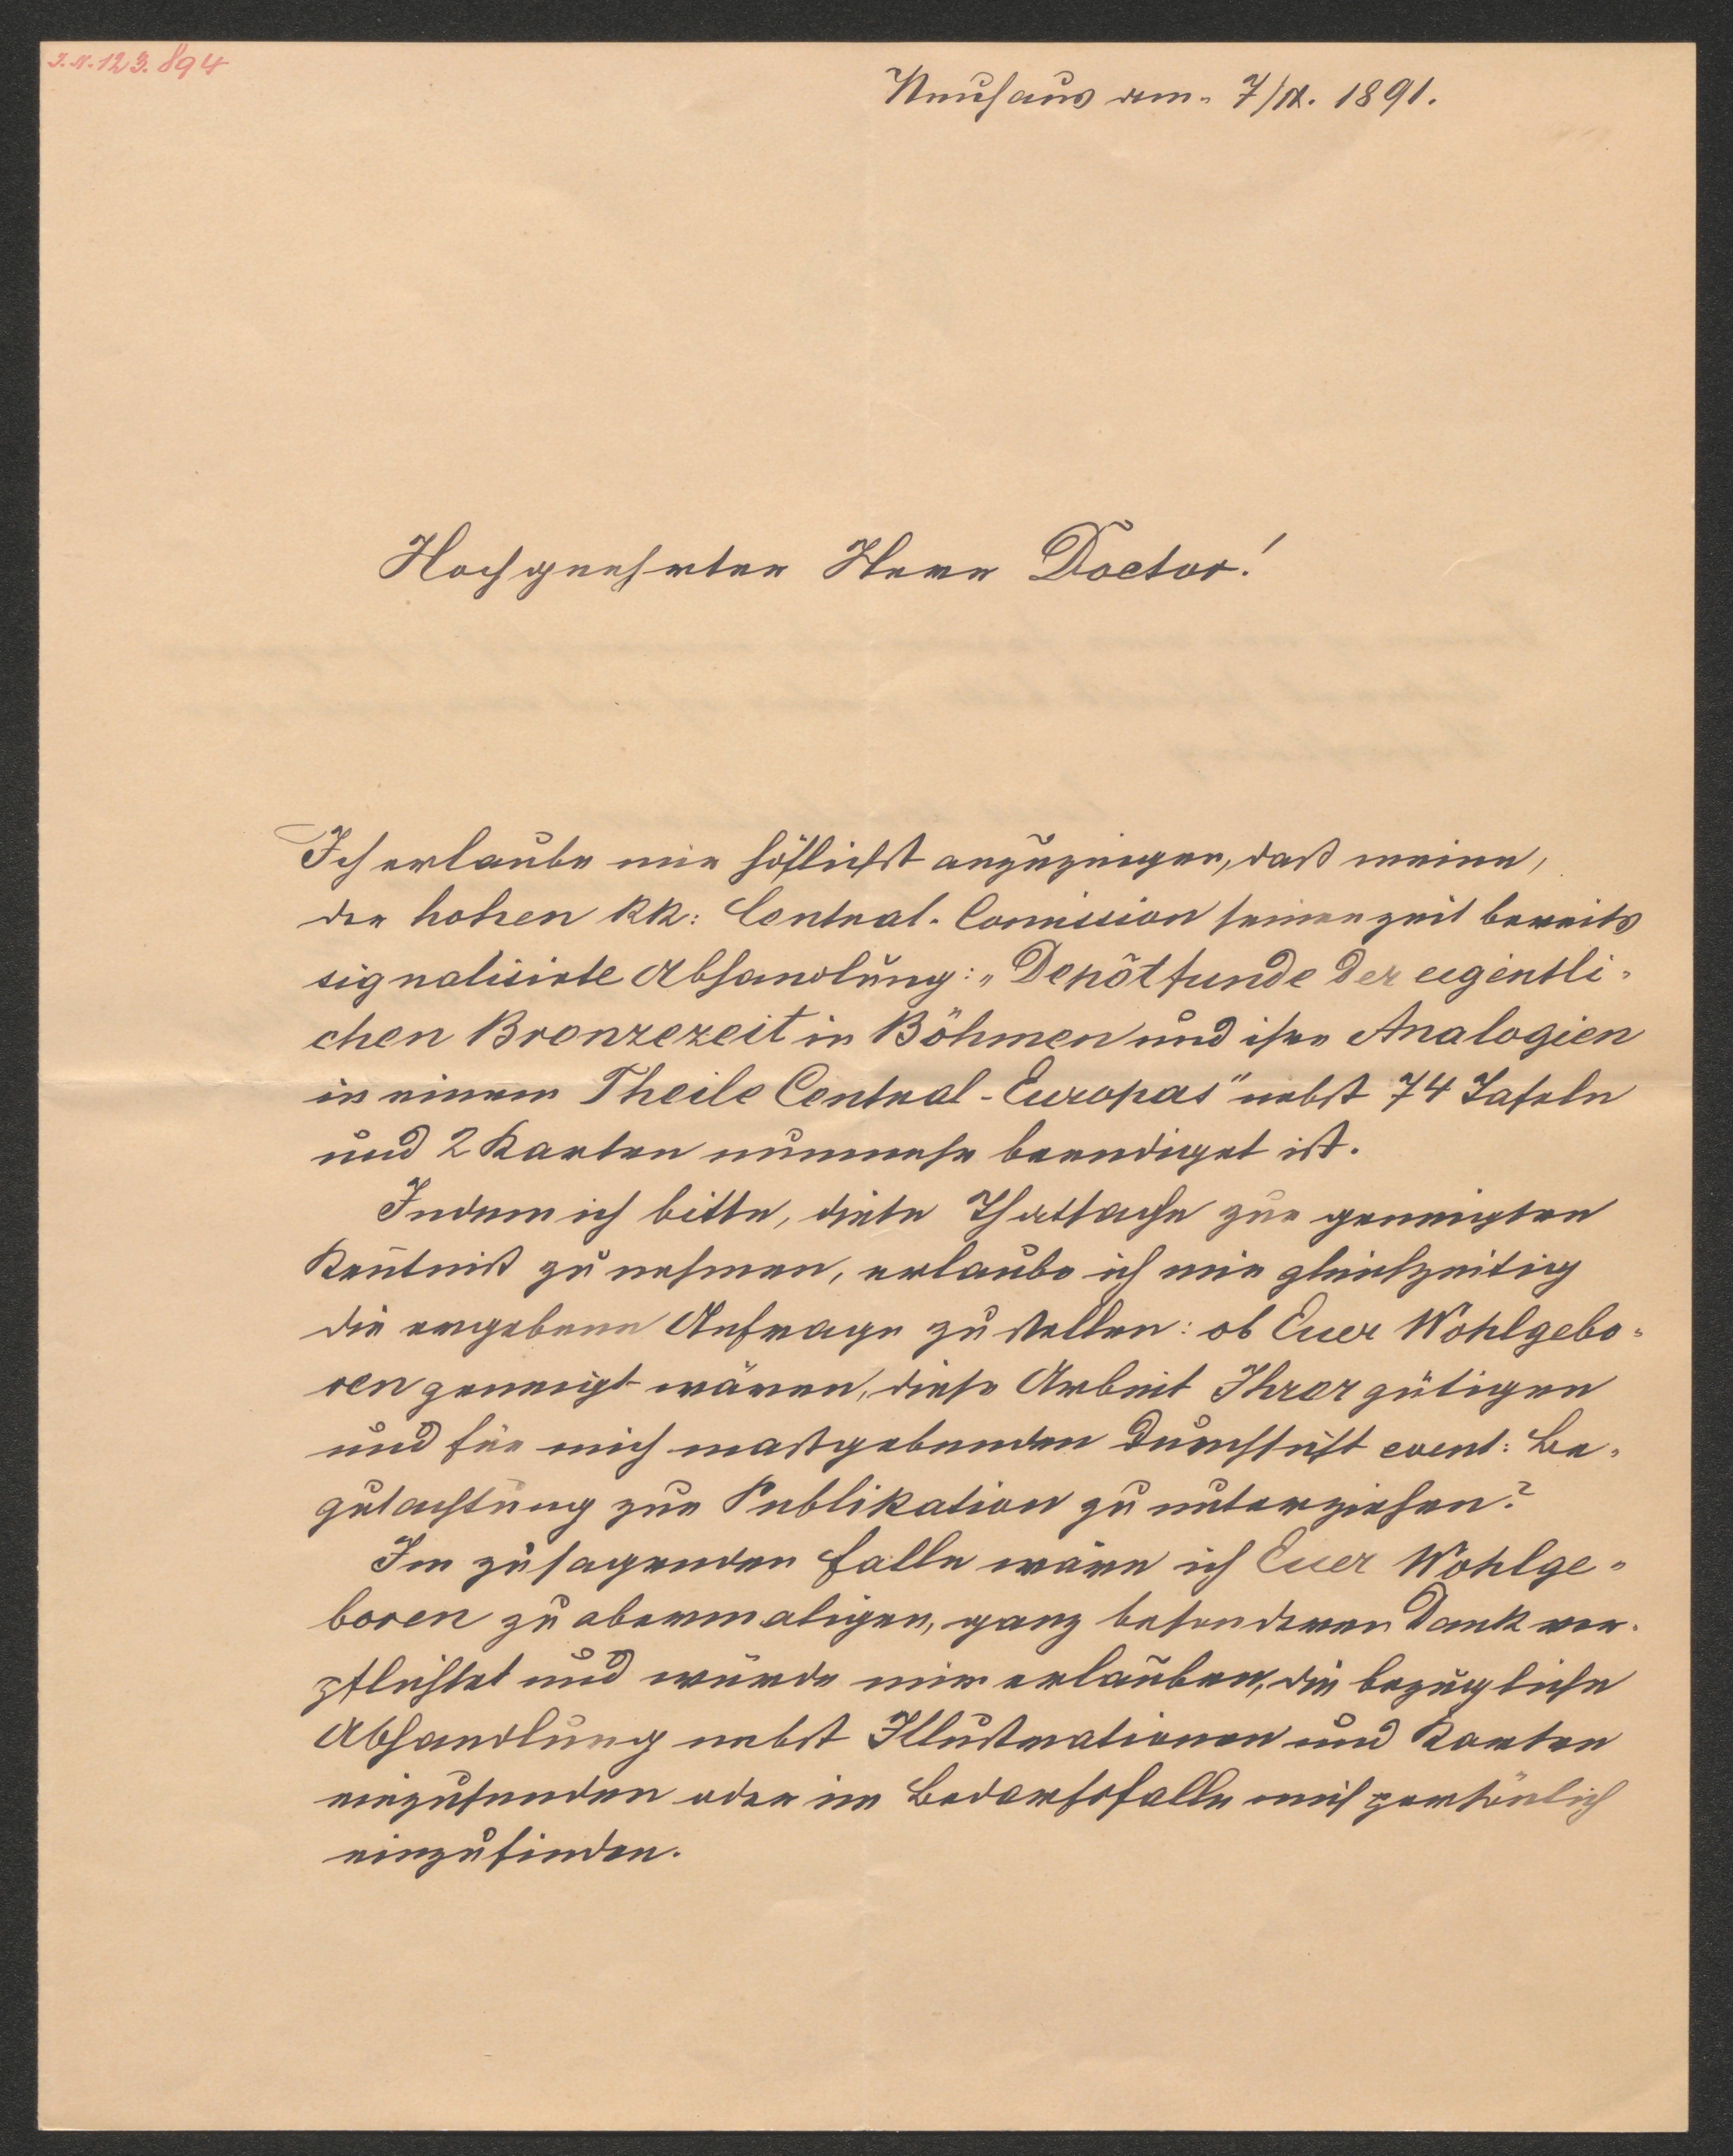 I.N. 123.894
Neuhaus am 7/IX. 1891.
Hochgeehrter Herr Doctor!
Ich erlaube mir höflichst anzuzeigen, daß meine,
der hohen kk: Central-Comission seinerzeit bereits
signalisirte Abhandlung: „Depôtfunde der eigentli-
chen Bronzezeit in Böhmen und ihre Analogien
in einem Theile Central-Europas" nebst 74 Tafeln
und 2 Karten nunmehr beendiget ist.
Indem ich bitte, diese Thatsache zur geneigten
Kentniß zu nehmen, erlaube ich mir gleichzeitig
die ergebene Anfrage zu stellen: ob Euer Wohlgebo-
ren geneigt wären, diese Arbeit Ihrer gütigen
und für mich maßgebenden Durchsicht event: Be-
gutachtung zur Publikation zu unterziehen?
Im zusagenden Falle wäre ich Euer Wohlge-
boren zu abermaligen, ganz besonderen Dank ver-
pflichtet und würde mir erlauben, die bezügliche
Abhandlung nebst Illustrationen und Karten
einzusenden oder im Bedarfsfalle mich persönlich
einzufinden.